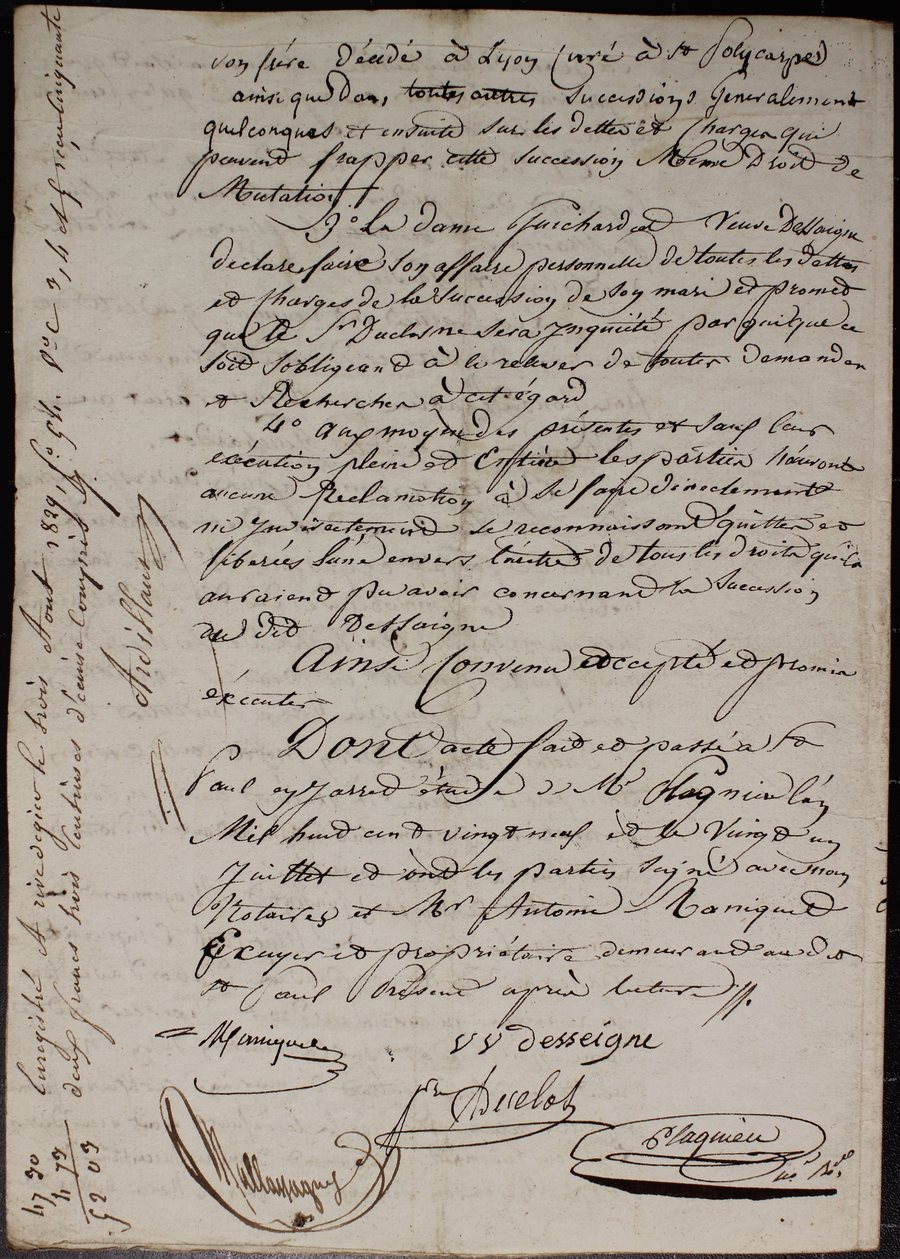 son frére Décédé à Lyon Curé à St Polycarpe
ainsi que dans toutes autres successions Generalement
quelconques et ensuite sur les dettes et Charges qui
peuvend frapper cette succession Meme Droit de
Mutation
3° La dame Guichard et Veuve Dessaigne
declare faire son affaire personnelle de toutes les dettes
et Charges de la succession de son mari et promet
que le Sr sera Inquiété par qui que ce
soit s'obligeand à le relever de toutes demandes
et Recherches à cet égard
4° aux moyen des présentes et sauf leur
exécution pleine et Entière les parties n'auront
aucune Reclamation à se faire directement
ni Indirectement se reconnaissant quittes et
liberées l'une envers l'autre de tous les droits qu'ils
auraiend pu avoir concernand la succession
du dit Dessaigne
Ainsi Convenu accepté et promis
éxécuter
Dont acte fait et passé a St
Paul en Jarred étude de Me Plagnieu l'an
Mil huid cent vingt neuf et le Vingt un
Juillet et ont les parties signé avec nous
Notaires et Mr Antoine Maniqued
Ecuyer et propriétaire demeurand au dit
St Paul Présent après lecture
Maniquet
VV desseigne
Duclos
Plagnieu
nre Rle
Enregistré A rivedegier le trois Aout 1829, f° 94. Vo C 3, 4 et 5 reçu cinquante
deux francs trois centimes d'ecime compris
47 30
4 73
52 03